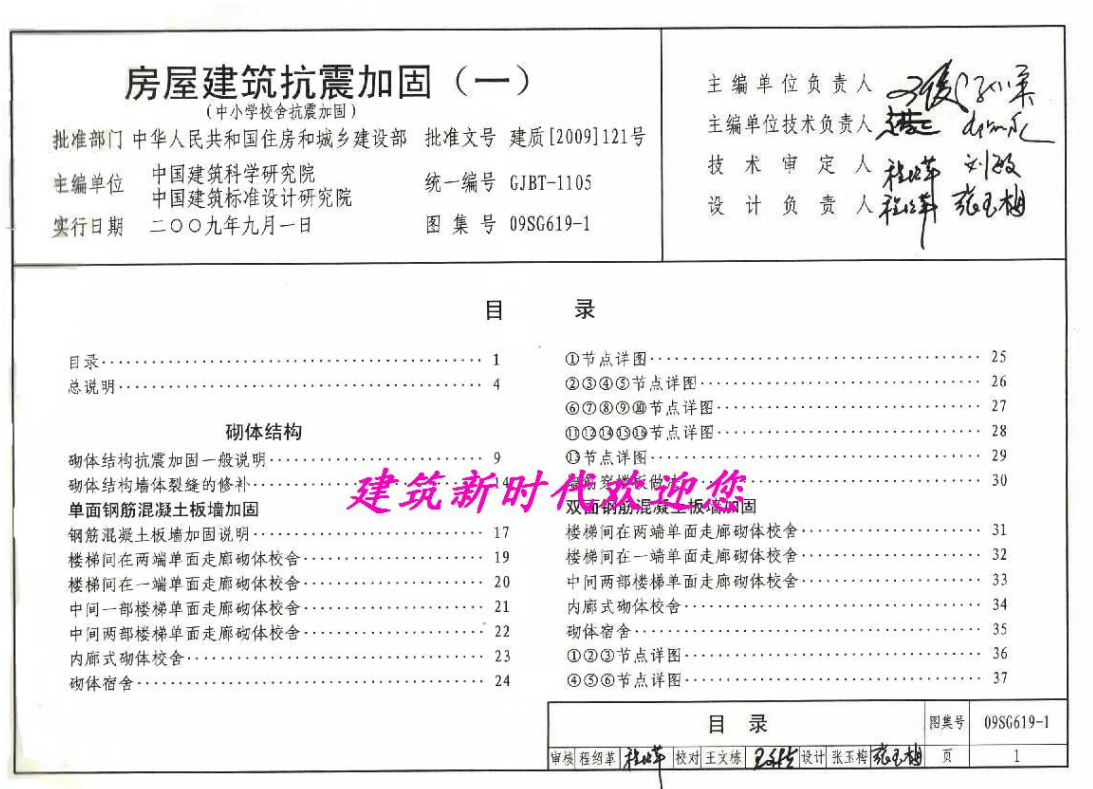 房屋建筑抗震加固（一）
（中小学校舍抗震加固）
批准部门 中华人民共和国住房和城乡建设部 批准文号 建质[2009]121号
主编单位 中国建筑科学研究院
中国建筑标准设计研究院
统一编号 GJBT-1105
实行日期 二〇〇九年九月一日 图集号 09SG619-1
主编单位负责人
主编单位技术负责人
技术审定人 程绍革 刘敏
设计负责人 程绍革 张玉梅
目录
目录 1
总说明 4
砌体结构
砌体结构抗震加固一般说明 9
砌体结构墙体裂缝的修补 14
单面钢筋混凝土板墙加固
钢筋混凝土板墙加固说明 17
楼梯间在两端单面走廊砌体校舍 19
楼梯间在一端单面走廊砌体校舍 20
中间一部楼梯单面走廊砌体校舍 21
中间两部楼梯单面走廊砌体校舍 22
内廊式砌体校舍 23
砌体宿舍 24
①节点详图 25
②③④⑤节点详图 26
⑥⑦⑧⑨⑩节点详图 27
⑪⑫⑭⑮⑯节点详图 28
⑬节点详图 29
楼板做法 30
建筑新时代欢迎您
双面钢筋混凝土板墙加固
楼梯间在两端单面走廊砌体校舍 31
楼梯间在一端单面走廊砌体校舍 32
中间两部楼梯单面走廊砌体校舍 33
内廊式砌体校舍 34
砌体宿舍 35
①②③节点详图 36
④⑤⑥节点详图 37
目录 图集号 09SG619-1
审核 程绍革 程绍革 校对 王文栋 设计 张玉梅 张玉梅 页 1